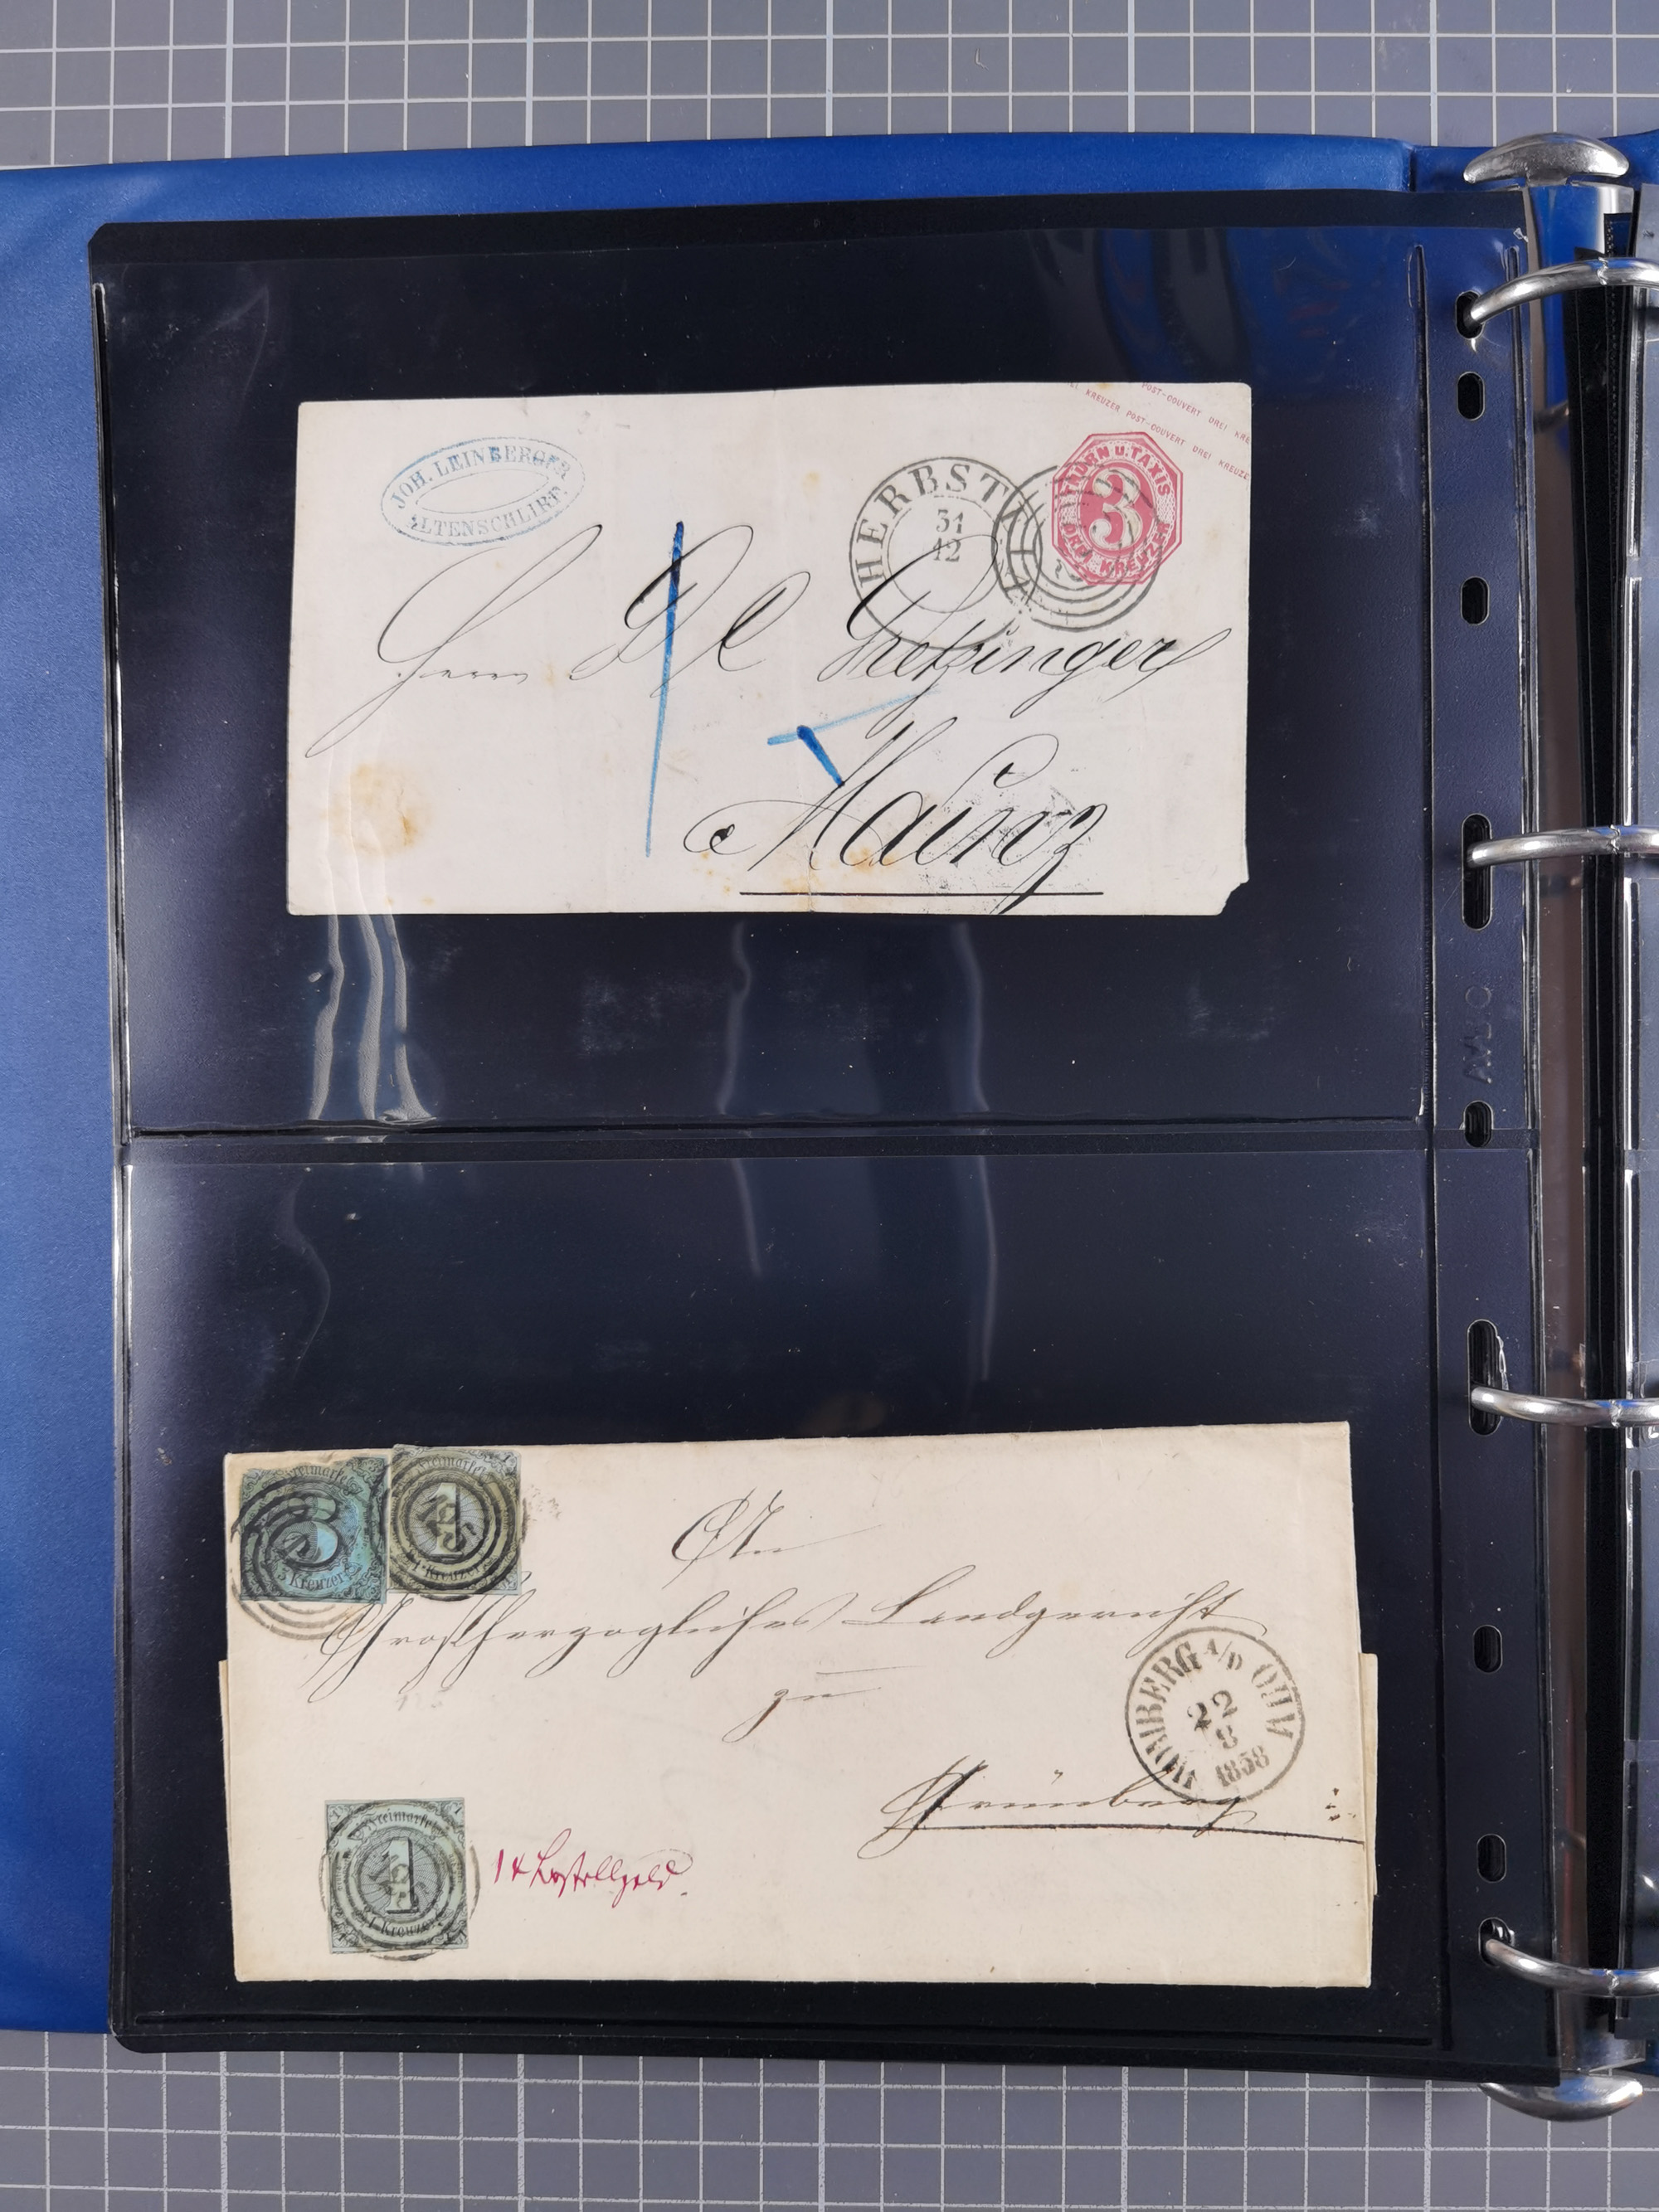 POST-COUVERT DREI KRE
KREUZER POST-COUVERT DREI KREUZE
JOH. LEINBERGER
ALTENSCHLIRF.
HERBST
31
12
THURN U. TAXIS
3
DREI KREUZER
Herrn
Mainz
Freimarke
3
3 Kreuzer
Freimarke
1
125
1 Kreuzer
An
Großherzogliches Landgericht
zu
Grünberg
HOMBERG A/D OHM
22
8
1858
Freimarke
1
125
1 Kreuzer
1 x Bestellgeld.
AVLC